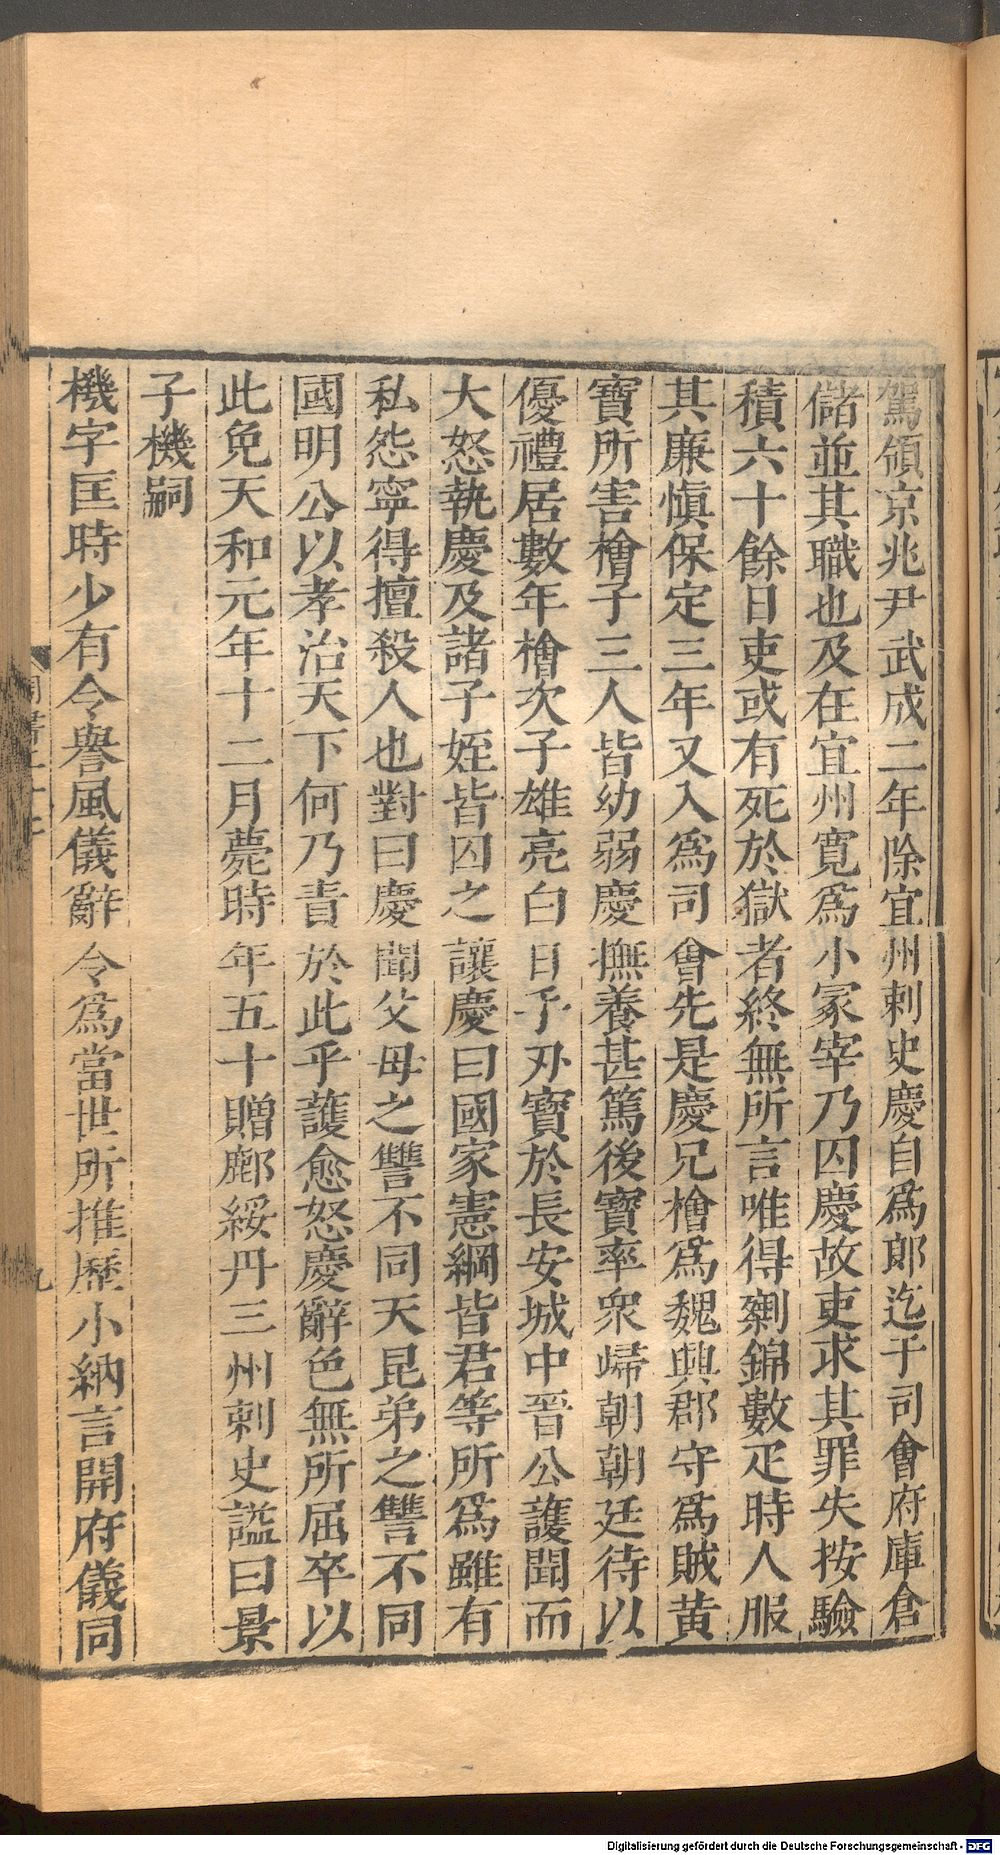 駕領京兆尹武成二年除宜州刺史慶自爲郎迄于司會府庫倉
儲並其職也及在宜州寬爲小冢宰乃囚慶故吏求其罪失按驗
積六十餘日吏或有死於獄者終無所言唯得剩錦數疋時人服
其廉慎保定三年又入爲司會先是慶兄檜爲魏興郡守爲賊黄
寶所害檜子三人皆幼弱慶撫養甚篤後寶率衆歸朝朝廷待以
優禮居數年檜次子雄亮白日手刃寶於長安城中晉公護聞而
大怒執慶及諸子姪皆囚之讓慶曰國家憲綱皆君等所爲雖有
私怨寧得擅殺人也對曰慶聞父母之讐不同天昆弟之讐不同
國明公以孝治天下何乃責於此乎護愈怒慶辭色無所屈卒以
此免天和元年十二月薨時年五十贈鄜綏丹三州刺史謚曰景
子機嗣
機字匡時少有令譽風儀辭令爲當世所推歷小納言開府儀同
九
Digitalisierung gefördert durch die Deutsche Forschungsgemeinschaft - DFG